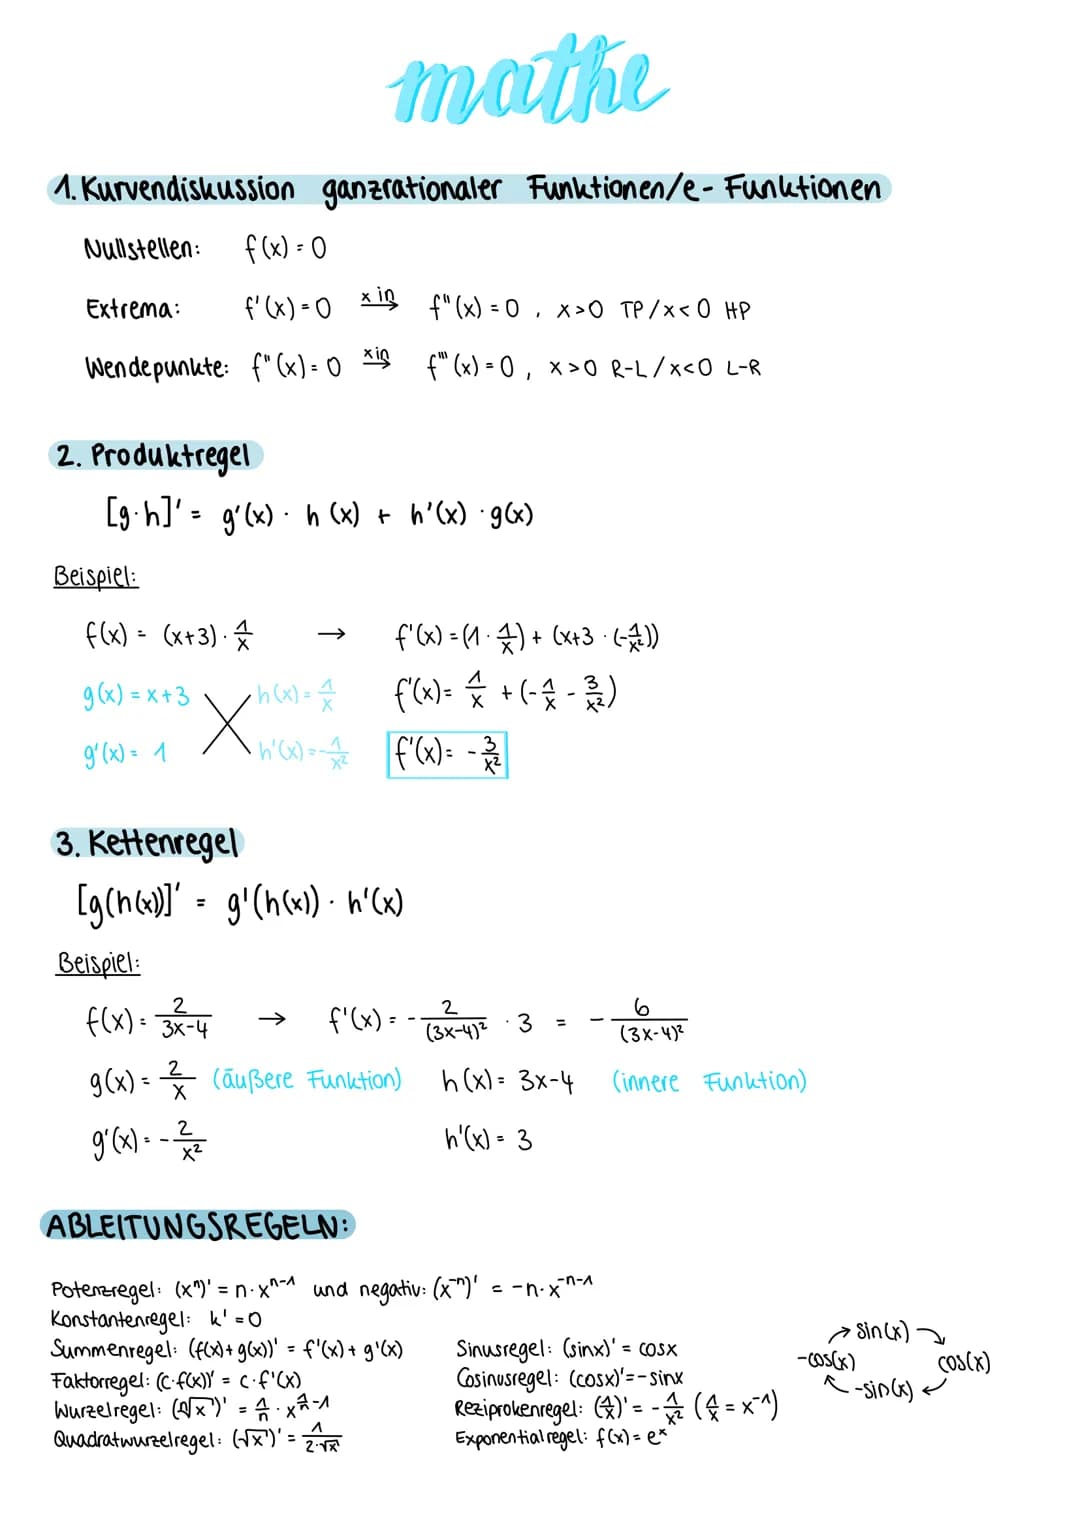 mathe
1. Kurvendiskussion ganzrationaler Funktionen/e- Funktionen
Nullstellen: f(x) = 0
Extrema: f'(x) = 0 x in → f"(x) = 0 , x>0 TP/x<0 HP
Wendepunkte: f"(x) = 0 x in → f'''(x) = 0 , x>0 R-L/x<0 L-R
2. Produktregel
[g·h]' = g'(x) · h (x) + h'(x) · g(x)
Beispiel:
f(x) = (x+3) · 1/x → f'(x) = (1 · 1/x) + (x+3 · (-1/x²))
g(x) = x+3 h(x) = 1/x f'(x) = 1/x + (-1/x - 3/x²)
g'(x) = 1 h'(x) = -1/x² f'(x) = - 3/x²
3. Kettenregel
[g(h(x))]' = g'(h(x)) · h'(x)
Beispiel:
f(x) = 2/(3x-4) → f'(x) = - 2/(3x-4)² · 3 = - 6/(3x-4)²
g(x) = 2/x (äußere Funktion) h(x) = 3x-4 (innere Funktion)
g'(x) = - 2/x² h'(x) = 3
ABLEITUNGSREGELN:
Potenzregel: (xⁿ)' = n·xⁿ⁻¹ und negativ: (x⁻ⁿ)' = -n·x⁻ⁿ⁻¹
Konstantenregel: k' = 0
Summenregel: (f(x)+g(x))' = f'(x) + g'(x)
Faktorregel: (c·f(x))' = c·f'(x)
Wurzelregel: (ⁿ√x)' = 1/n · x^(1/n - 1)
Quadratwurzelregel: (√x)' = 1/(2·√x)
Sinusregel: (sinx)' = cosx
Cosinusregel: (cosx)' = -sinx
Reziprokenregel: (1/x)' = - 1/x² (1/x = x⁻¹)
Exponentialregel: f(x) = eˣ
→ sin(x)
-cos(x) cos(x)
-sin(x)